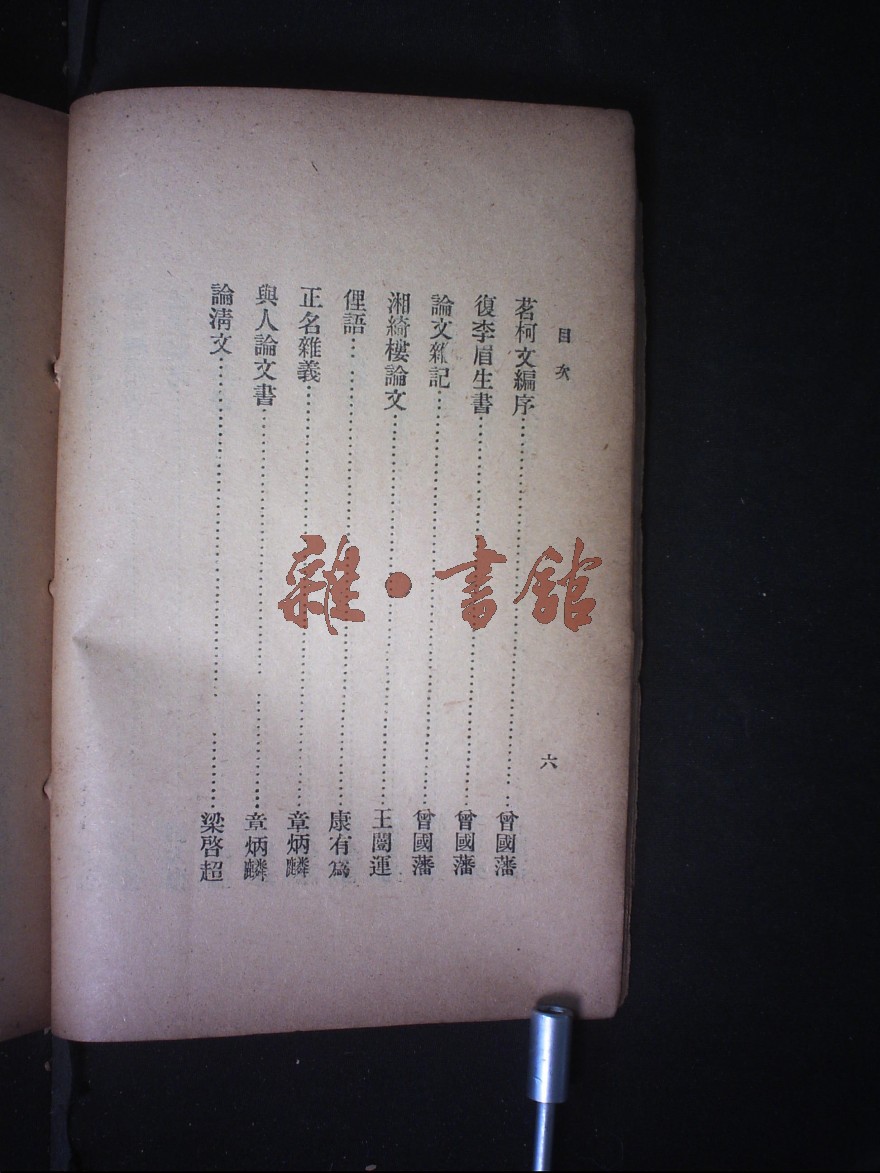 目次
六
茗柯文編序……曾國藩
復李眉生書……曾國藩
論文雜記……曾國藩
湘綺樓論文……王闓運
俚語……康有為
正名雜義……章炳麟
與人論文書……章炳麟
論清文……梁啓超
雜·書館